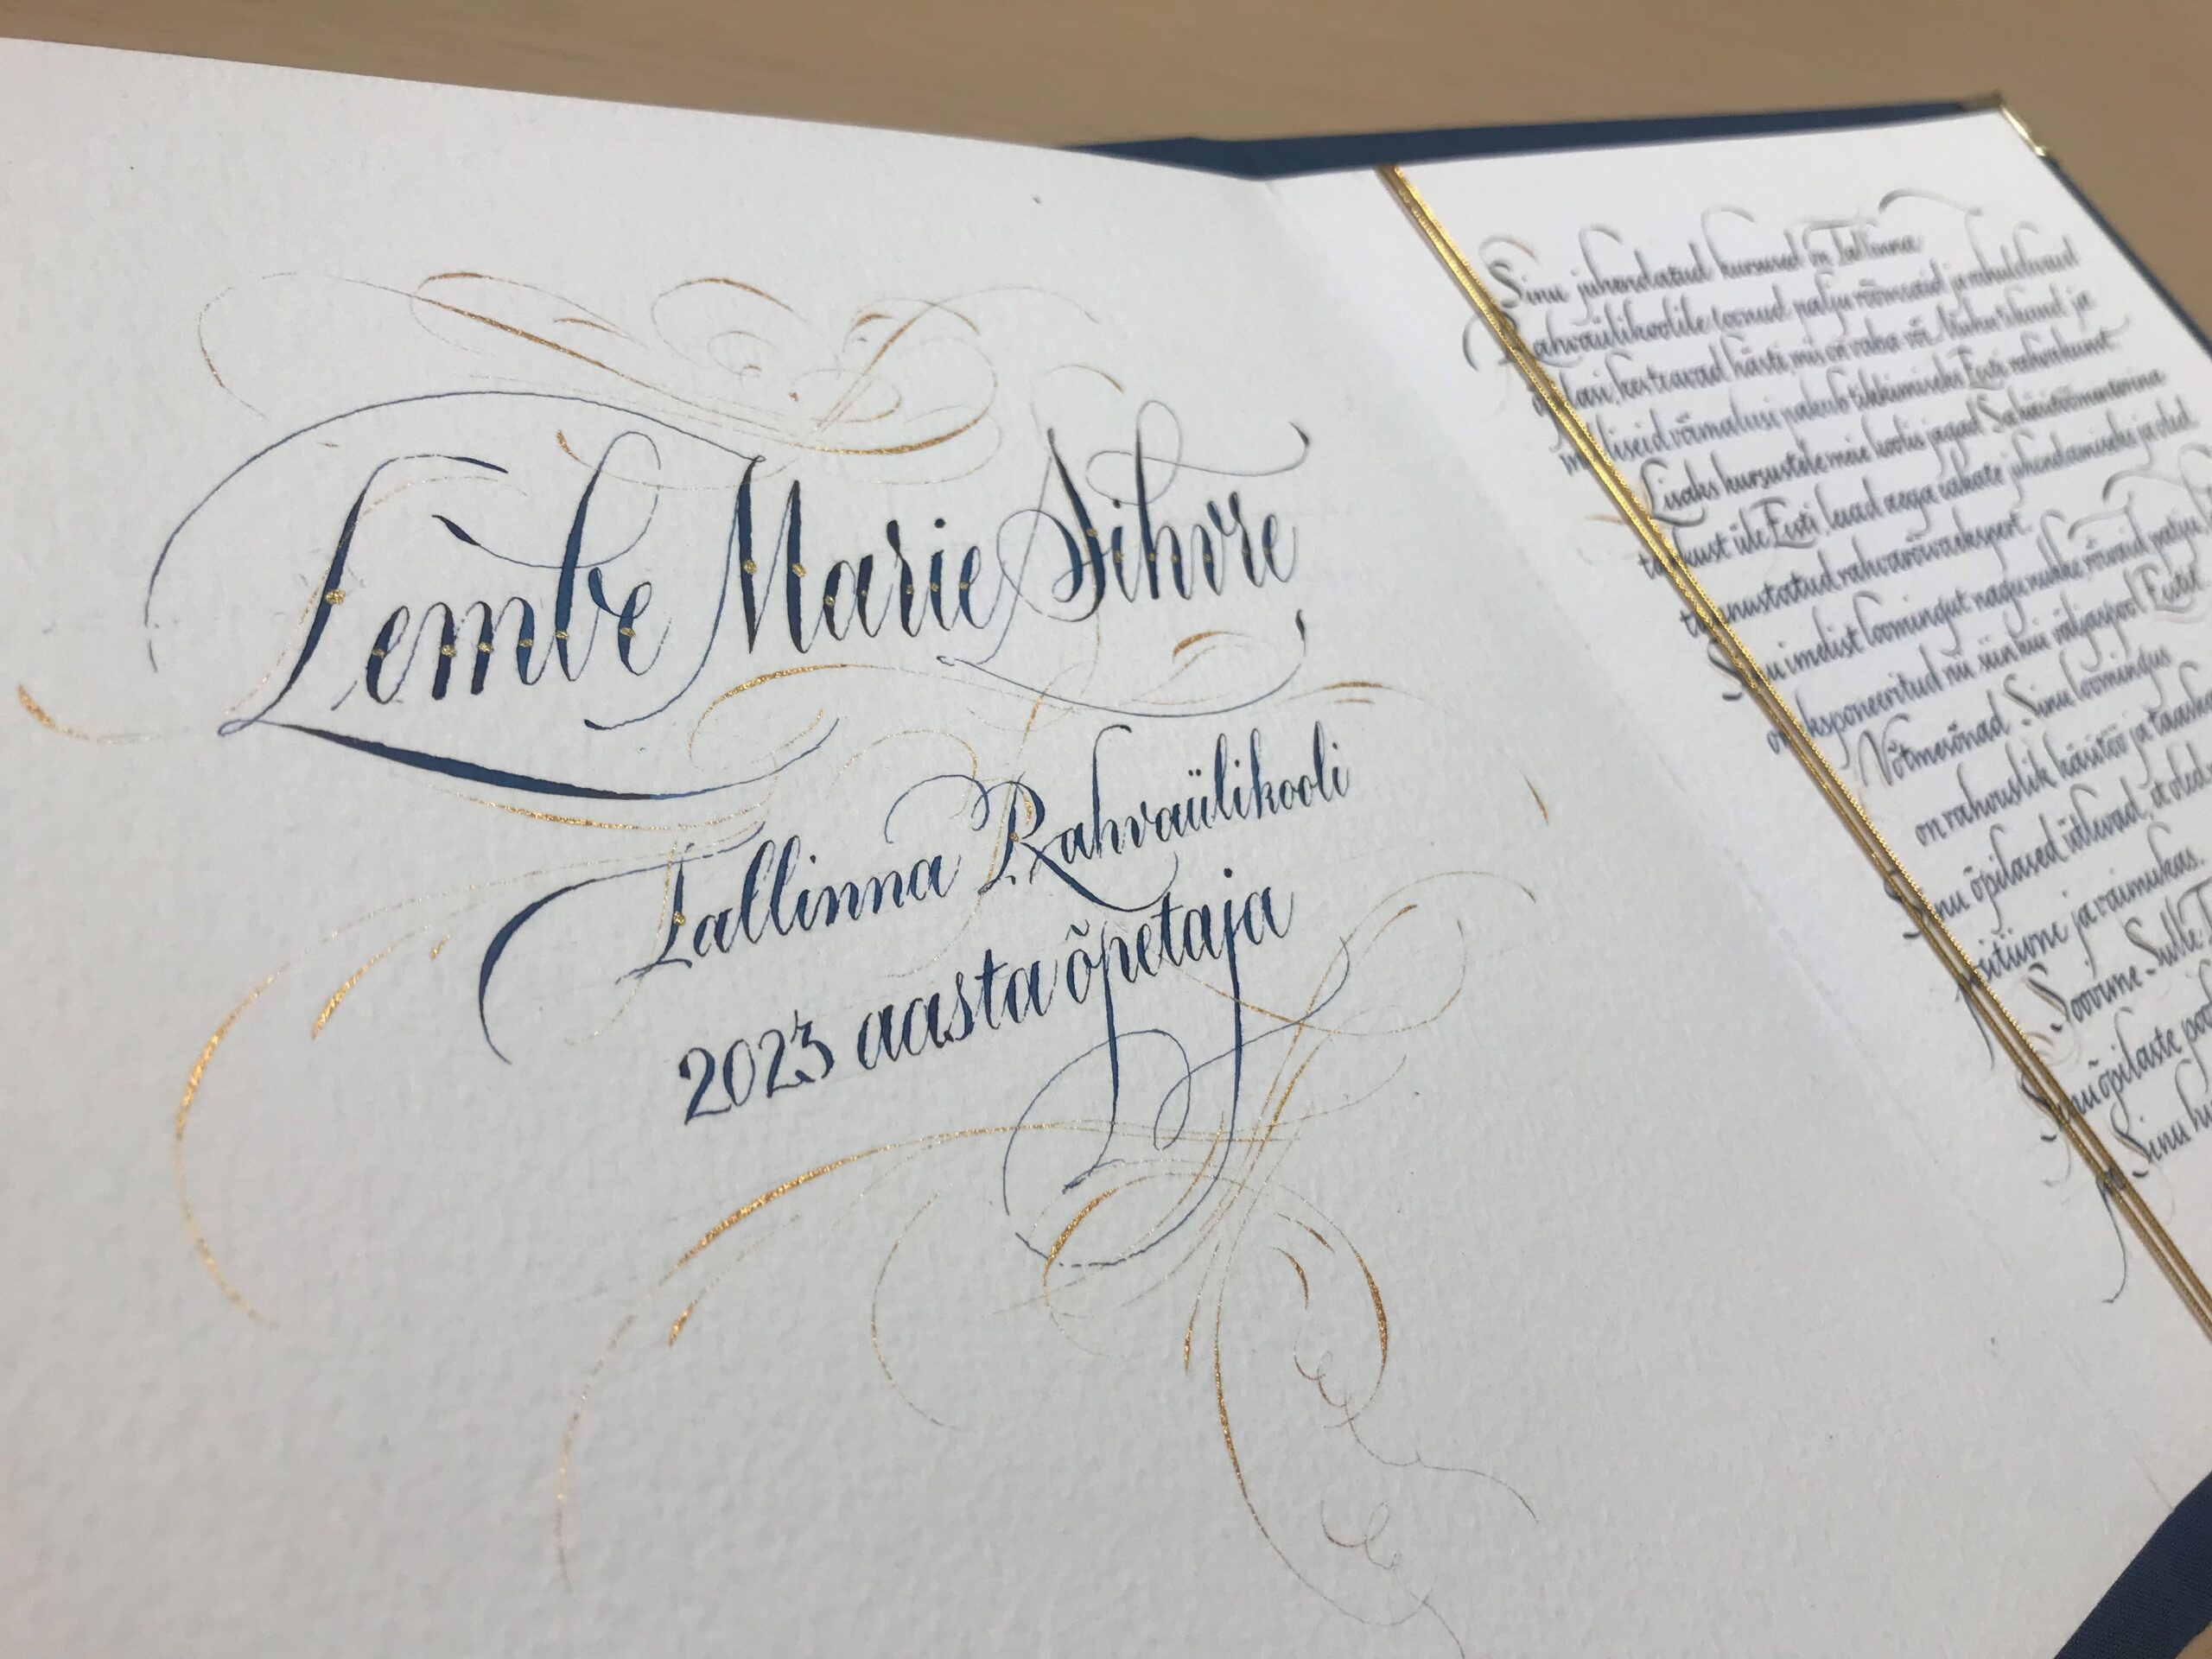 Lembe Marie Sihvre
Tallinna Rahvaülikooli
2023 aasta õpetaja
Sinu juhendatud kursused on Tallinna
Rahvaülikoolile toonud palju rõõmsaid ja rahulolevaid
kes teavad hästi mis on raba või Muhu tikand ja
võimalusi pakub tikkimiseks Eesti rahvakunst.
Lisaks kursustele meie koolis jagad Sa käsitöömeistrina
üle Eesti, leiad aega juhendamiseks ja oled
tunnustatud rahvarõivaekspert.
Sinu imelist loomingut nagu nukke, rõivaid palju
on eksponeeritud nii siin kui väljaspool Eestit
Võtmesõnad Sinu loomingus
on rahvuslik käsitöö ja
Sinu õpilased ütlevad, et oled
positiivne ja vaimukas.
Soovime Sulle
Sinu õpilaste
Sinu